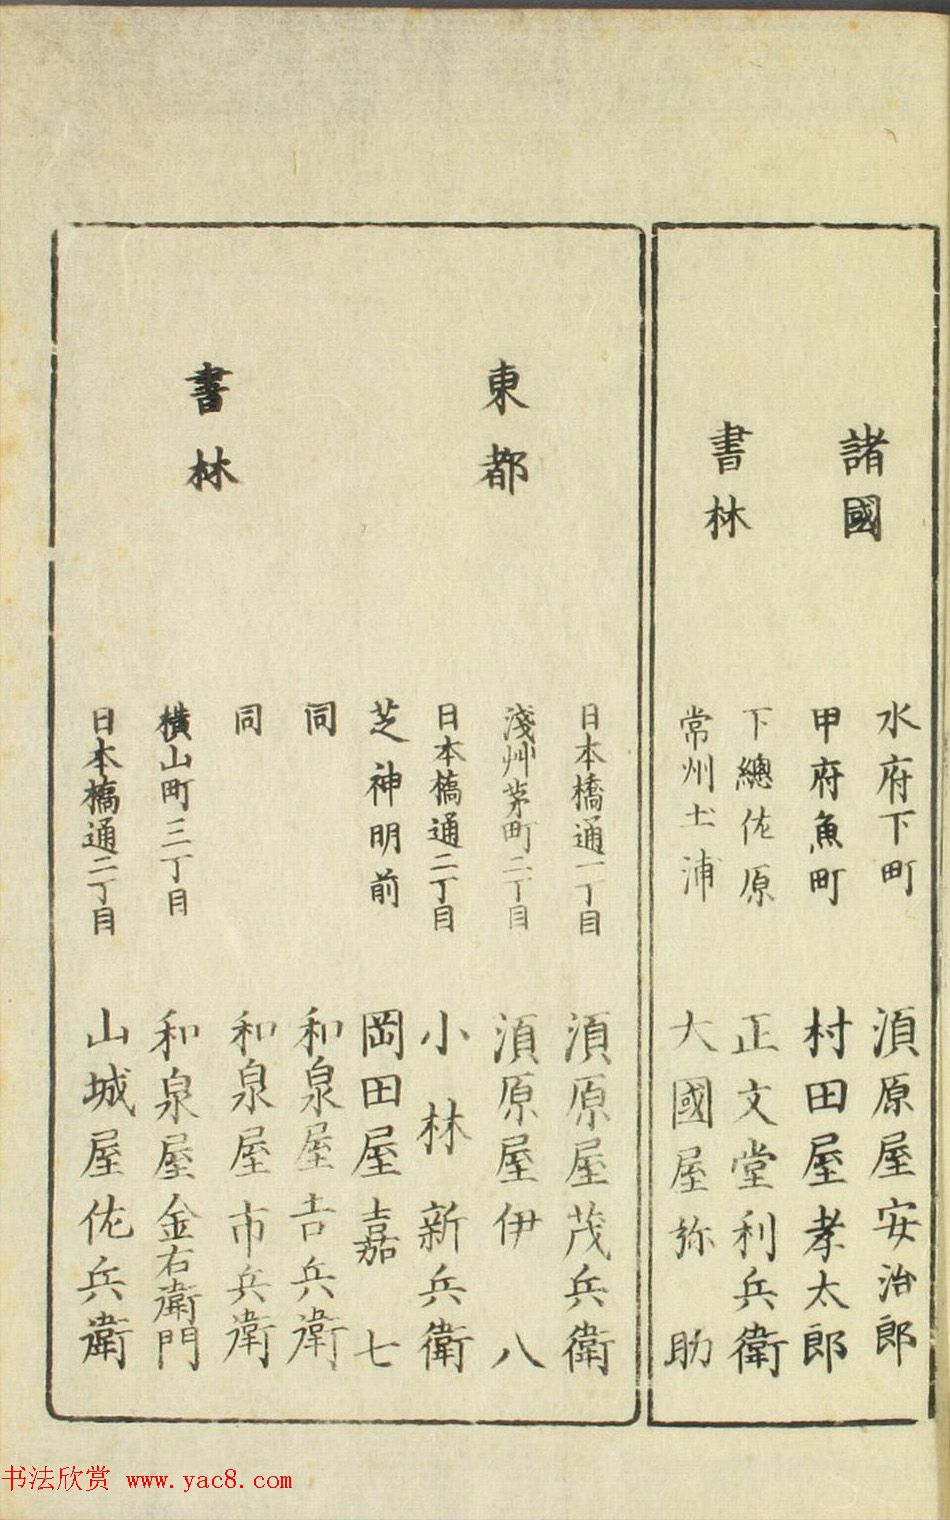 諸國
書林
水府下町 須原屋安治郎
甲府魚町 村田屋孝太郎
下總佐原 正文堂利兵衛
常州土浦 大國屋弥助
東都
書林
日本橋通一丁目 須原屋茂兵衛
淺艸茅町二丁目 須原屋伊八
日本橋通二丁目 小林新兵衛
芝神明前 岡田屋嘉七
同 和泉屋吉兵衛
同 和泉屋市兵衛
橫山町三丁目 和泉屋金右衛門
日本橋通二丁目 山城屋佐兵衛
书法欣赏 www.yac8.com